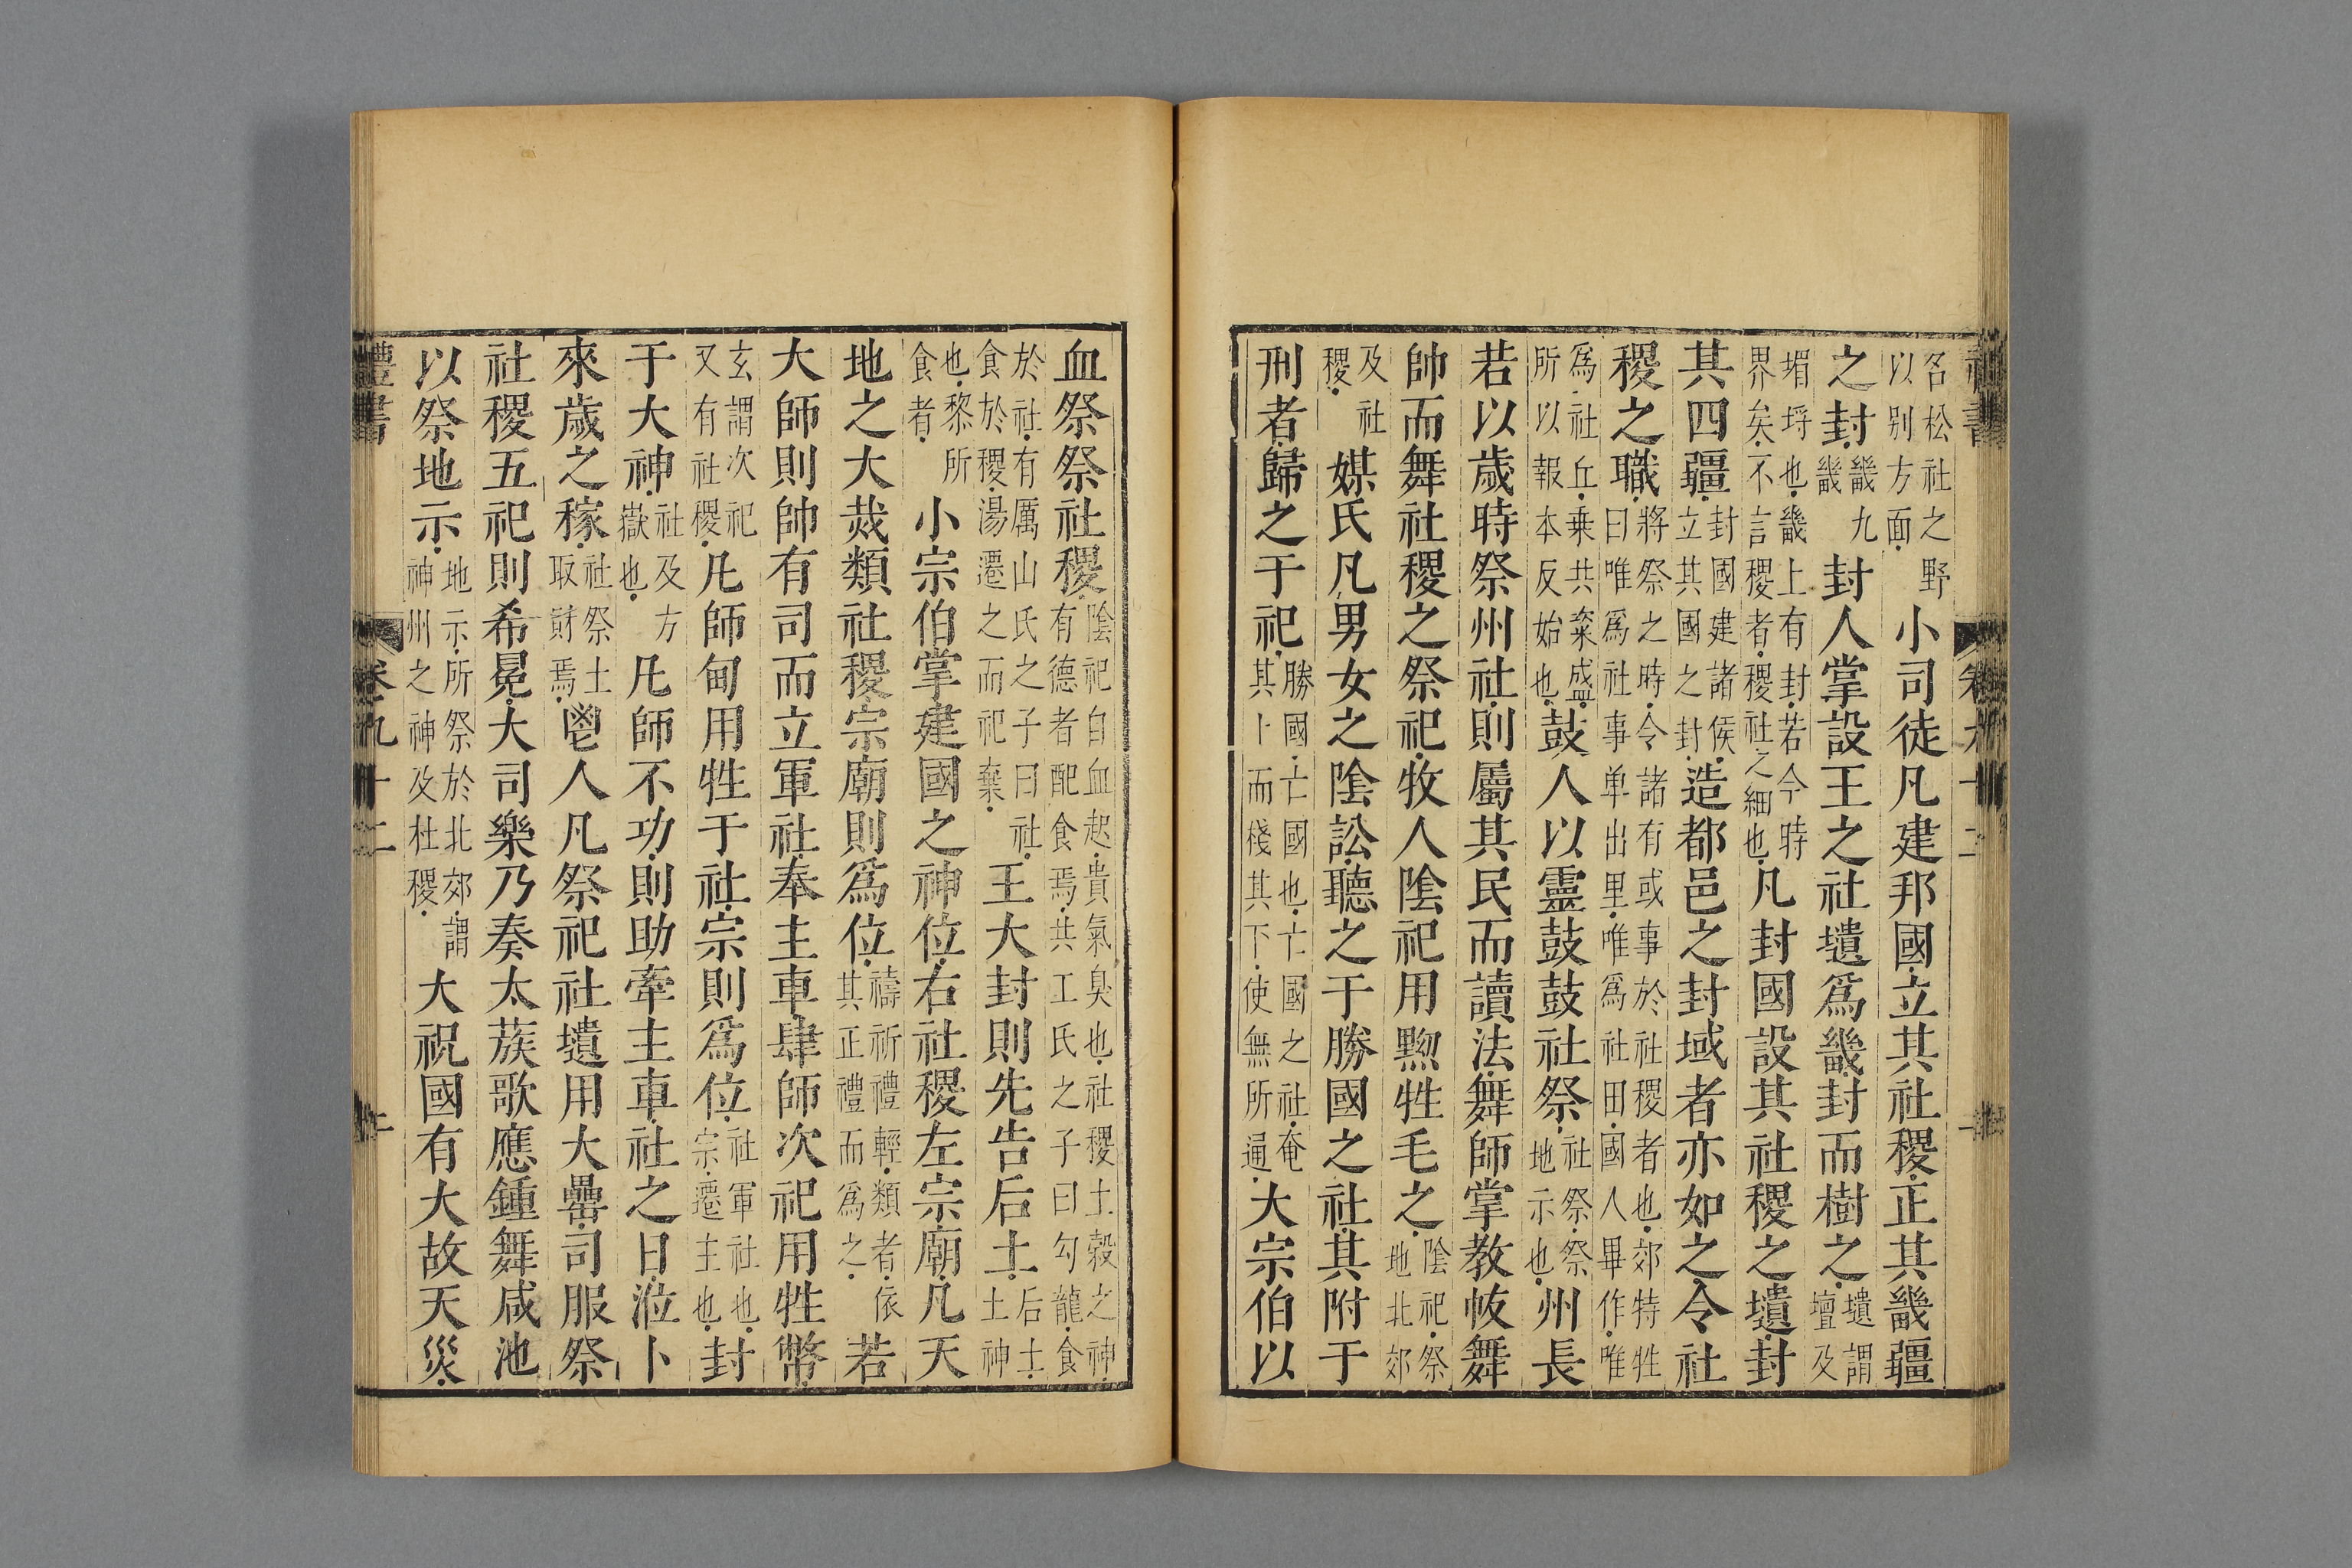 名松社之野以别方面小司徒凡建邦國立其社稷正其畿疆
之封畿九畿封人掌設王之社壝爲畿封而樹之壝謂壇及
堳埒也畿上有封若今時界矣不言稷者稷社之細也凡封國設其社稷之壝封
其四疆封國建諸侯立其國之封造都邑之封域者亦如之令社
稷之職將祭之時令諸有或事於社稷者也郊特牲曰唯爲社事单出里唯爲社田國人畢作唯
爲社丘乗共粢盛所以報本反始也鼓人以靈鼓鼓社祭社祭祭地示也州長
若以歲時祭州社則屬其民而讀法舞師掌教帗舞
帥而舞社稷之祭祀牧人陰祀用黝牲毛之陰祀祭地北郊
及社稷媒氏凡男女之陰訟聽之于勝國之社其附于
刑者歸之于祀勝國亡國也亡國之社奄其卜而棧其下使無所通大宗伯以
血祭祭社稷陰祀自血起貴氣臭也社稷土穀之神有德者配食焉共工氏之子曰勾龍食
於社有厲山氏之子曰社食於稷湯遷之而祀棄王大封則先告后土后土土神
也黎所食者小宗伯掌建國之神位右社稷左宗廟凡天
地之大烖類社稷宗廟則爲位禱祈禮輕類者依其正禮而爲之若
大師則帥有司而立軍社奉主車肆師次祀用牲幣
玄謂次祀又有社稷凡師甸用牲于社宗則爲位社軍社也宗遷主也封
于大神社及方嶽也凡師不功則助牽主車社之日涖卜
來歲之稼社祭土取財焉鬯人凡祭祀社壝用大罍司服祭
社稷五祀則希冕大司樂乃奏太蔟歌應鍾舞咸池
以祭地示地示所祭於北郊謂神州之神及社稷大祝國有大故天災
禮書 卷九十二